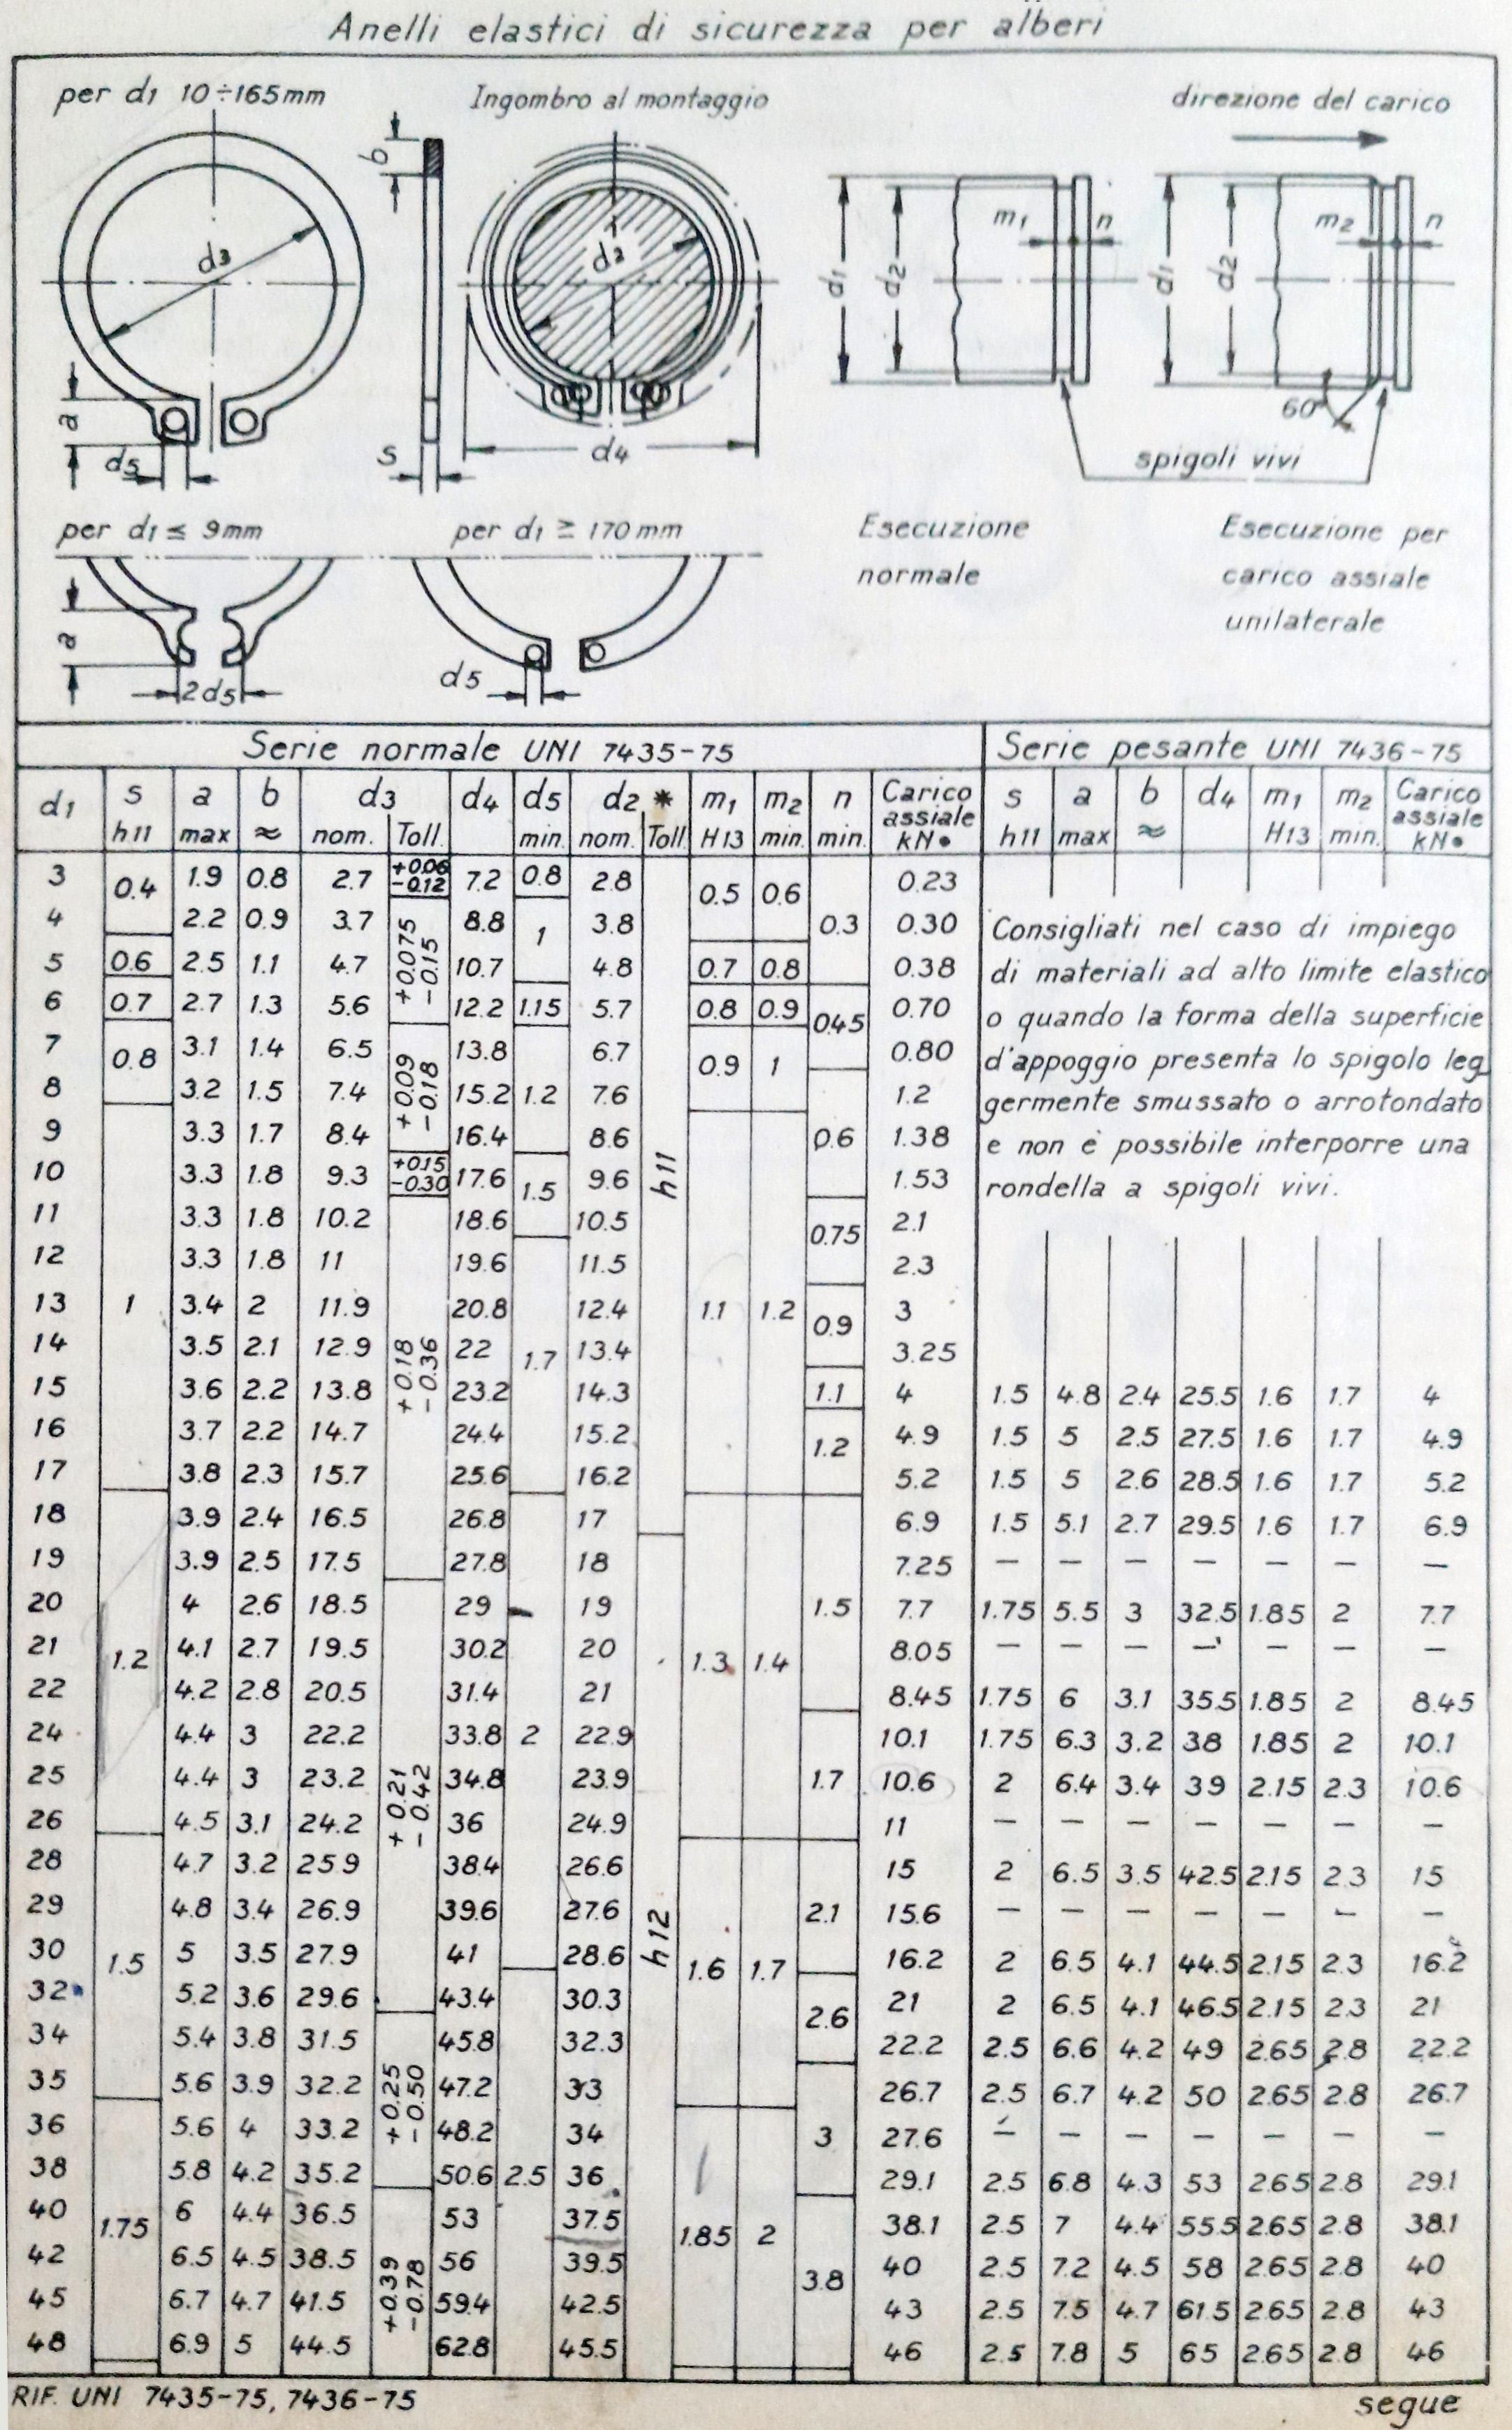 Anelli elastici di sicurezza per alberi
per d1 10÷165mm
Ingombro al montaggio
direzione del carico
b
d3
d2
d1
d2
m1
n
d1
d2
m2
n
a
d5
s
d4
60°
spigoli vivi
per d1 ≤ 9mm
per d1 ≥ 170mm
Esecuzione
normale
Esecuzione per
carico assiale
unilaterale
a
2d5
d5
Serie normale UNI 7435-75 Serie pesante UNI 7436-75
d1 s a b d3 d4 d5 d2 * m1 m2 n Carico assiale s a b d4 m1 m2 Carico assiale
h11 max ≈ nom. Toll. min. nom. Toll. H13 min. min. kN• h11 max ≈ H13 min. kN•
3 0.4 1.9 0.8 2.7 +0.06 -0.12 7.2 0.8 2.8 h11 0.5 0.6 0.3 0.23
4 2.2 0.9 3.7 +0.075 -0.15 8.8 1 3.8 0.30 Consigliati nel caso di impiego
5 0.6 2.5 1.1 4.7 10.7 4.8 0.7 0.8 0.38 di materiali ad alto limite elastico
6 0.7 2.7 1.3 5.6 12.2 1.15 5.7 0.8 0.9 0.45 0.70 o quando la forma della superficie
7 0.8 3.1 1.4 6.5 +0.09 -0.18 13.8 1.2 6.7 0.9 1 0.80 d'appoggio presenta lo spigolo leg
8 3.2 1.5 7.4 15.2 7.6 0.6 1.2 germente smussato o arrotondato
9 1 3.3 1.7 8.4 16.4 8.6 1.1 1.2 1.38 e non è possibile interporre una
10 3.3 1.8 9.3 +0.15 -0.30 17.6 1.5 9.6 1.53 rondella a spigoli vivi.
11 3.3 1.8 10.2 +0.18 -0.36 18.6 10.5 0.75 2.1
12 3.3 1.8 11 19.6 1.7 11.5 2.3
13 3.4 2 11.9 20.8 12.4 0.9 3
14 3.5 2.1 12.9 22 13.4 3.25
15 3.6 2.2 13.8 23.2 14.3 1.1 4 1.5 4.8 2.4 25.5 1.6 1.7 4
16 3.7 2.2 14.7 24.4 15.2 1.2 4.9 1.5 5 2.5 27.5 1.6 1.7 4.9
17 3.8 2.3 15.7 25.6 16.2 5.2 1.5 5 2.6 28.5 1.6 1.7 5.2
18 1.2 3.9 2.4 16.5 26.8 2 17 1.3 1.4 1.5 6.9 1.5 5.1 2.7 29.5 1.6 1.7 6.9
19 3.9 2.5 17.5 27.8 18 h12 7.25 — — — — — — —
20 4 2.6 18.5 +0.21 -0.42 29 19 7.7 1.75 5.5 3 32.5 1.85 2 7.7
21 4.1 2.7 19.5 30.2 20 8.05 — — — — — — —
22 4.2 2.8 20.5 31.4 21 8.45 1.75 6 3.1 35.5 1.85 2 8.45
24 4.4 3 22.2 33.8 22.9 1.7 10.1 1.75 6.3 3.2 38 1.85 2 10.1
25 4.4 3 23.2 34.8 23.9 10.6 2 6.4 3.4 39 2.15 2.3 10.6
26 4.5 3.1 24.2 36 24.9 11 — — — — — — —
28 1.5 4.7 3.2 25.9 38.4 26.6 1.6 1.7 2.1 15 2 6.5 3.5 42.5 2.15 2.3 15
29 4.8 3.4 26.9 39.6 27.6 15.6 — — — — — — —
30 5 3.5 27.9 41 28.6 16.2 2 6.5 4.1 44.5 2.15 2.3 16.2
32 5.2 3.6 29.6 43.4 2.5 30.3 2.6 21 2 6.5 4.1 46.5 2.15 2.3 21
34 5.4 3.8 31.5 +0.25 -0.50 45.8 32.3 22.2 2.5 6.6 4.2 49 2.65 2.8 22.2
35 5.6 3.9 32.2 47.2 33 3 26.7 2.5 6.7 4.2 50 2.65 2.8 26.7
36 1.75 5.6 4 33.2 48.2 34 1.85 2 27.6 — — — — — — —
38 5.8 4.2 35.2 50.6 36 29.1 2.5 6.8 4.3 53 2.65 2.8 29.1
40 6 4.4 36.5 +0.39 -0.78 53 37.5 3.8 38.1 2.5 7 4.4 55.5 2.65 2.8 38.1
42 6.5 4.5 38.5 56 39.5 40 2.5 7.2 4.5 58 2.65 2.8 40
45 6.7 4.7 41.5 59.4 42.5 43 2.5 7.5 4.7 61.5 2.65 2.8 43
48 6.9 5 44.5 62.8 45.5 46 2.5 7.8 5 65 2.65 2.8 46
RIF. UNI 7435-75, 7436-75
segue